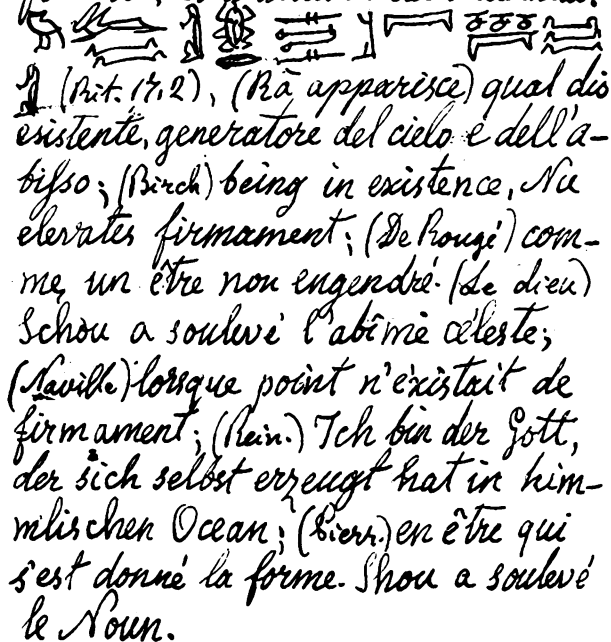 (Rit. 17, 2), (Râ apparisce) qual dio
esistente, generatore del cielo e dell'a-
bisso; (Birch) being in existence, Nu
elevates firmament; (De Rougé) com-
me un être non engendré. (Le dieu)
Schou a soulevé l'abîme céleste;
(Naville) lorsque point n'éxistait de
firmament; (Rein.) Ich bin der Gott,
der sich selbst erzeugt hat in him-
mlischen Ocean; (Pierr.) en être qui
s'est donné la forme. Shou a soulevé
le Noun.